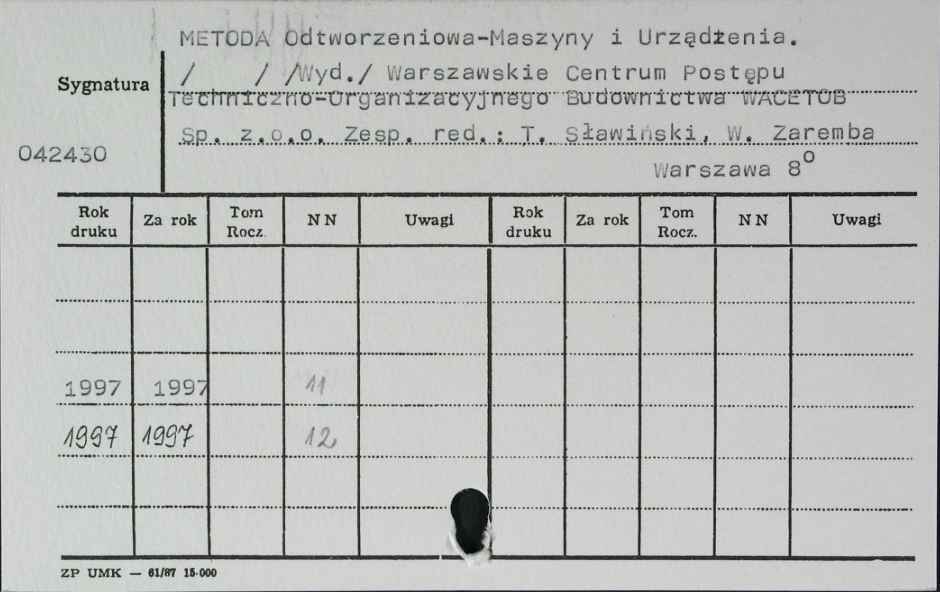 METODA Odtworzeniowa-Maszyny i Urządzenia.
/ / /Wyd./ Warszawskie Centrum Postępu
Sygnatura
Techniczno-Organizacyjnego Budownictwa WACETOB
Sp. z.o.o. Zesp. red.: T. Sławiński, W. Zaremba
042430
Warszawa 8°
Rok druku Za rok Tom Rocz. N N Uwagi Rok druku Za rok Tom Rocz. N N Uwagi
1997 1997 11
1997 1997 12
ZP UMK — 61/87 15·000